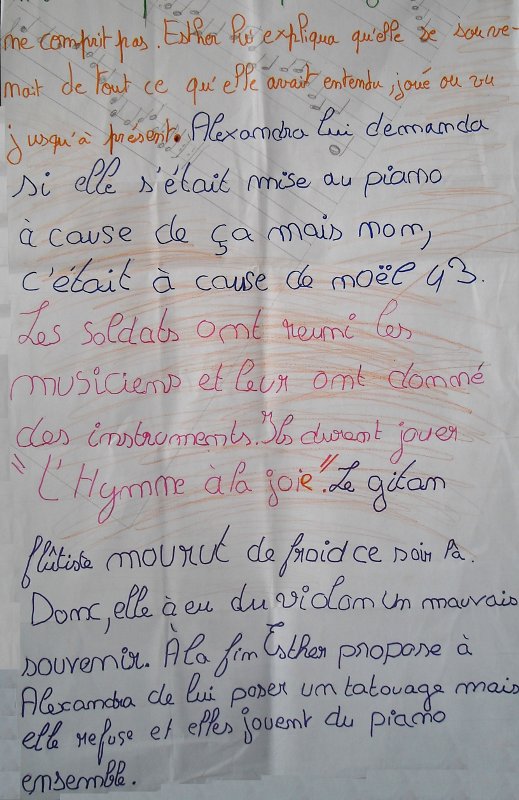 me comprit pas. Esther lui expliqua qu'elle se souve-
nait de tout ce qu'elle avait entendu, joué ou vu
jusqu'à présent. Alexandra lui demanda
si elle s'était mise au piano
à cause de ça mais non,
c'était à cause de noël 43.
Les soldats ont reuni les
musiciens et leur ont donné
des instruments. Ils durent jouer
"L'Hymne à la joie". Le gitan
flûtiste mourut de froid ce soir là.
Donc, elle à eu du violon un mauvais
souvenir. À la fin Esther propose à
Alexandra de lui poser un tatouage mais
elle refuse et elles jouent du piano
ensemble.